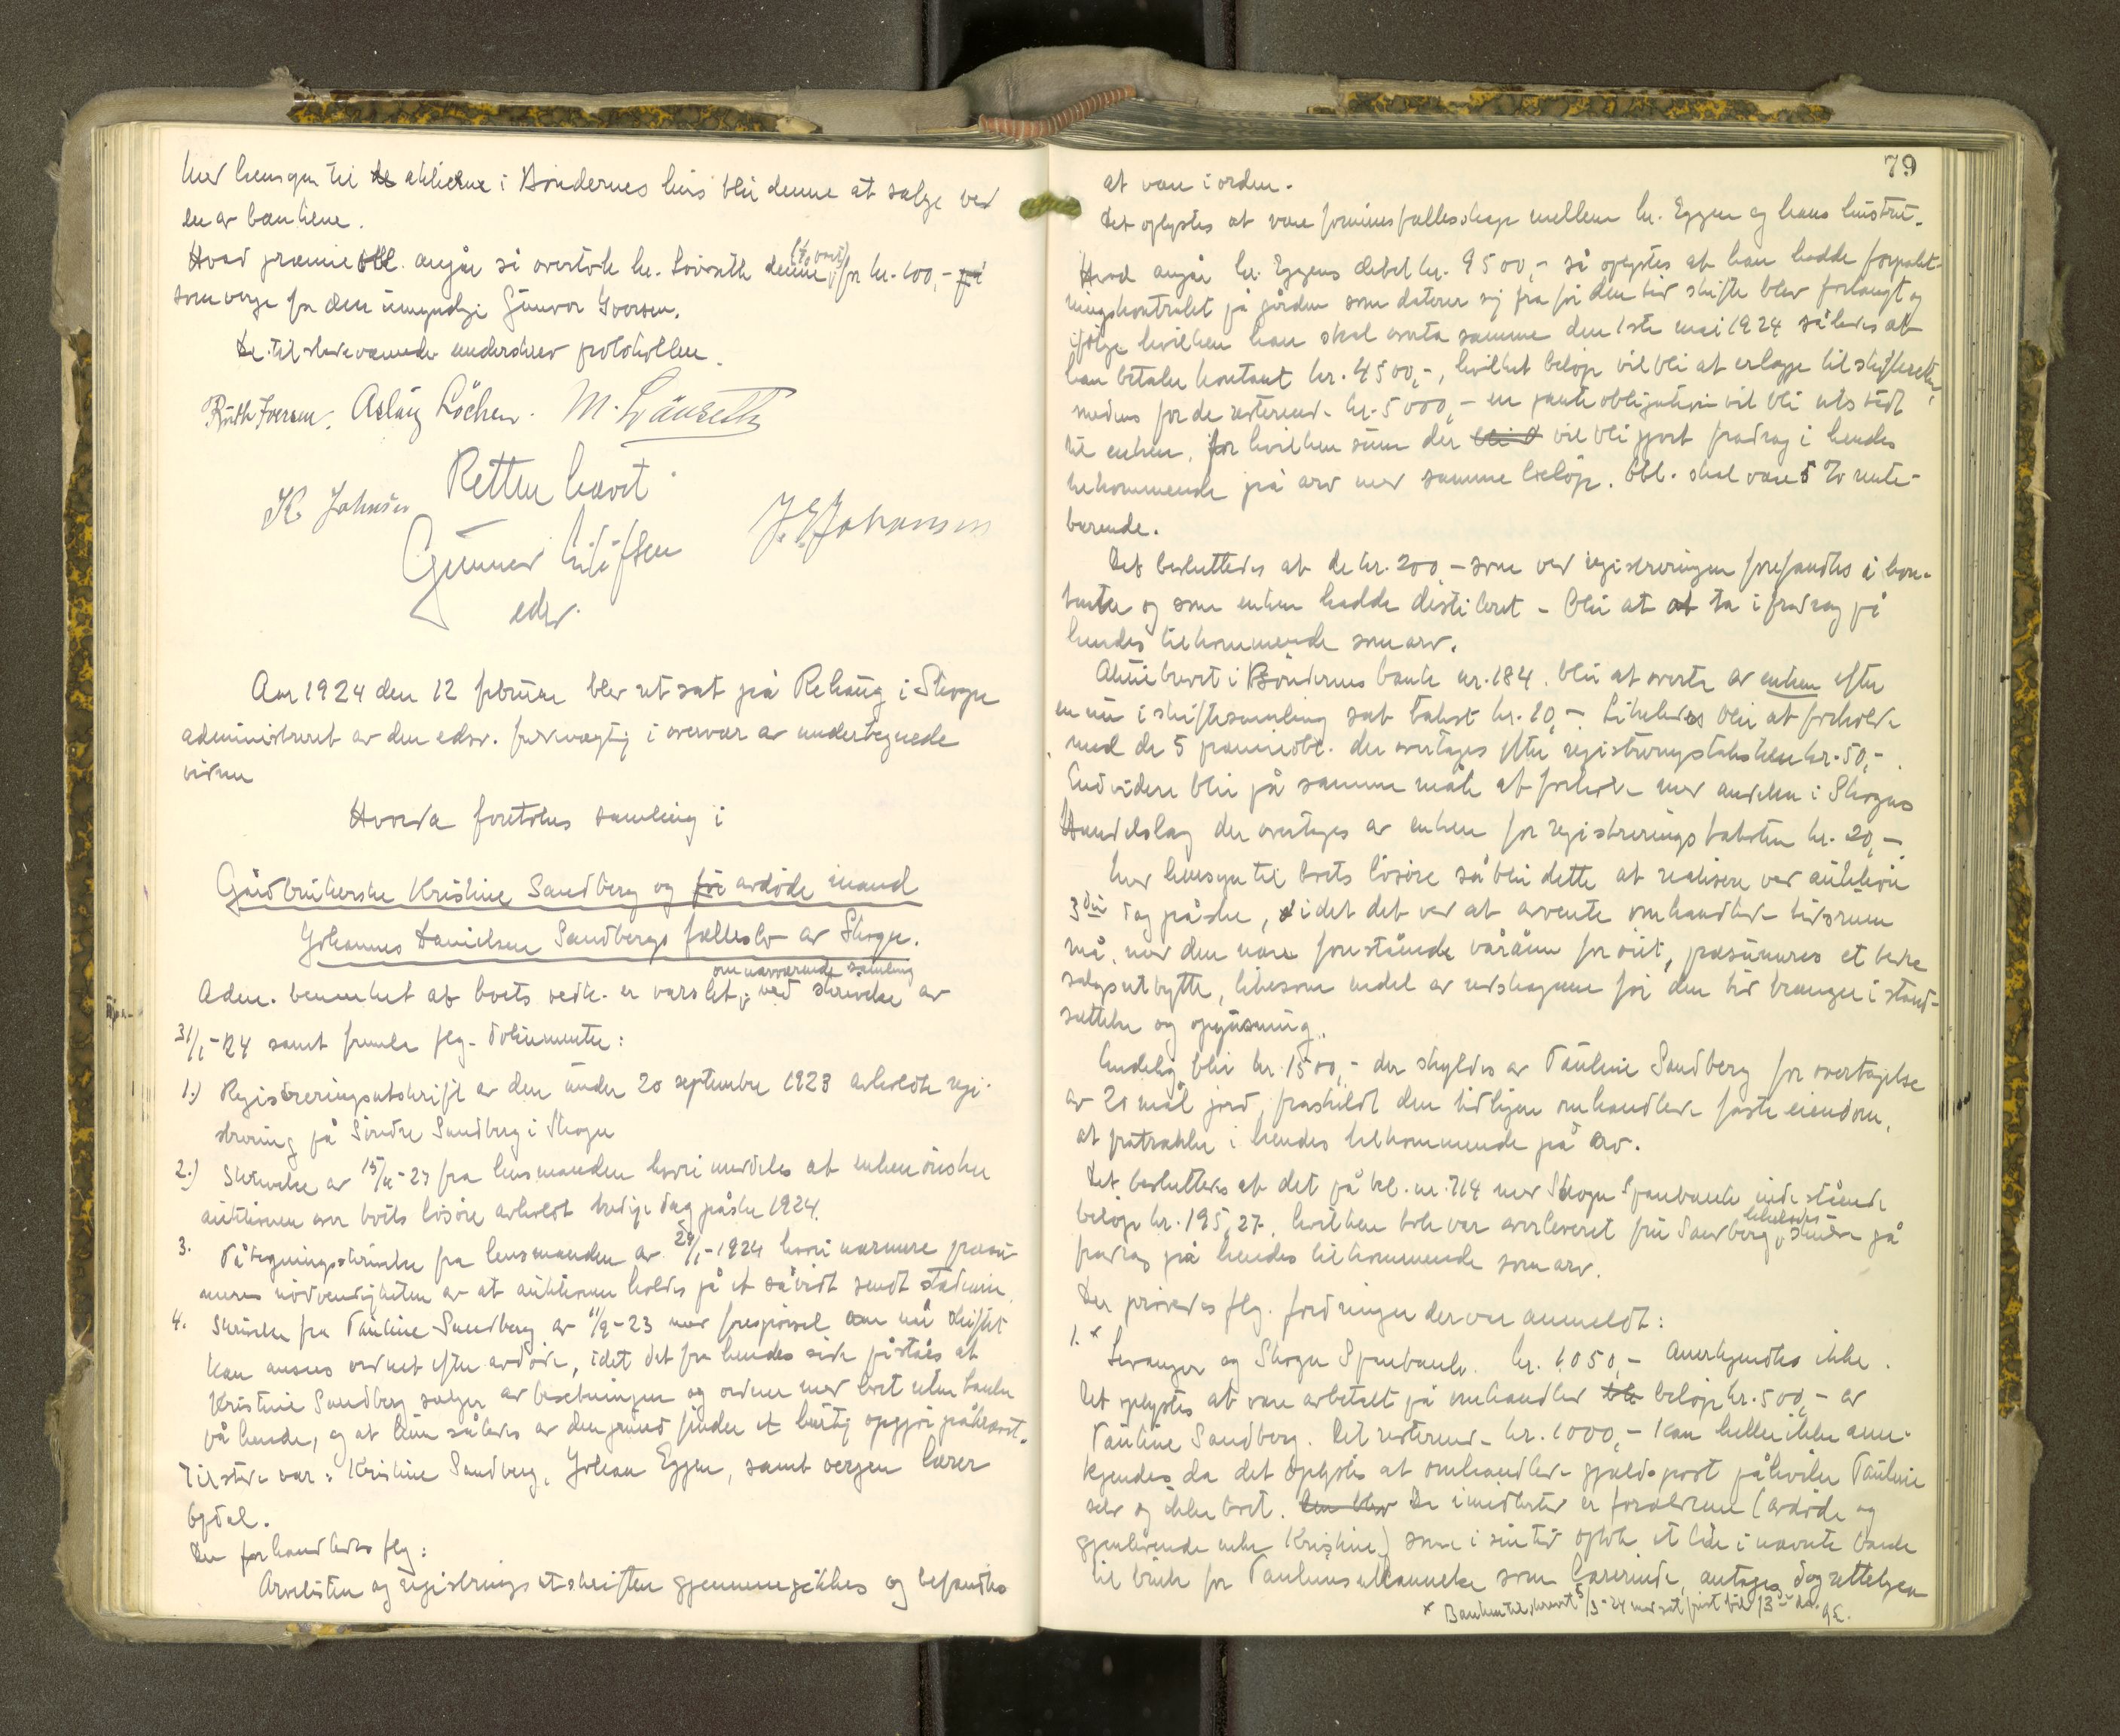 Med hensyn til de aktierne i Bøndernes hus blir denne at sælge ved
en av bankene.
Hvad præmieobl. angår så overtok hr. Løvseth denne (1/10 part) for kr. 100,- på
som verge for den umyndige Gunvor Iversen.
De tilstedeværende underskrev protokollen.
Ruth Iversen. Aslaug Löchen. M. Løvseth
Retten hævet
K. Johnsen J. E. Johansen
Gunnar Eilifsen
edsv.
Aar 1924 den 12 februar blev ret sat på Rehaug i Skogn
administreret av den edsv. fuldmægtig i overvær av undertegnede
vidner
Hvorda foretokes samling i
Gårdbrukerske Kristine Sandberg og for avdøde mand
Johannes Danielsen Sandbergs fællesbo av Skogn.
Adm. bemerket at boets vedk. er varslet om nærværende samling ved skrivelse av
31/1-24 samt fremla flg. dokumenter:
1.) Registreringsutskrift av den under 20 september 1923 avholdte regi-
strering på Søndre Sandberg i Skogn
2.) Skrivelse av 15/11-23 fra lensmanden hvori meddeles at enken ønsker
auktionen over boets løsøre avholdt tredje dag påske 1924.
3. Påtegningsskrivelse fra lensmanden av 29/1-1924 hvori nærmere præsu-
meres nødvendigheten av at auktionen holdes på et såvidt sendt stadium.
4. Skrivelse fra Pauline Sandberg av 11/9-23 med forespørsel om når skiftet
kan ansees ordnet efter avdøde, idet det fra hendes side påståes at
Kristine Sandberg sælger av besetningen og ordner med boet uten tanke
på hende, og at hun således av den grund finder et hurtig opgjør påkrævt.
Tilstede var: Kristine Sandberg, Johan Eggen, samt vergen lærer
Opdal.
Der forhandledes flg:
Arvelisten og registreringsutskriften gjennemgikkes og befandtes
79
at være i orden.
Det oplystes at være formuesfællesskap mellem hr. Eggen og hans hustru.
Hvad angår hr. Eggens debet kr. 9500,- så oplystes at han hadde forpakt-
ningskontrakt på gården som daterer sig fra før den tid skifte blev forlangt og
ifølge hvilken han skal overta samme den 1ste mai 1924 således at
han betaler kontant kr. 4500,-, hvilket beløp vil bli at erlægge til skifteretten,
medens for de resterende kr. 5000,- en panteobligation vil bli utstedt
til enken, for hvilken sum der bli d vil bli gjort fradrag i hendes
tilkommende på arv med samme beløp. Obl. skal være 5 % rente-
bærende.
Det besluttedes at de kr. 200,- som ved registreringen forefandtes i kon-
tanter og som enken hadde disponeret - blir at at ta i fradrag på
hendes tilkommende som arv.
Aktiebrevet i Bøndernes bank nr. 184. blir at overta av enken efter
en nu i skiftesamling sat takst kr. 20,- Likeledes blir at forholde
med de 5 præmieobl. der overtages efter registreringstaksten kr. 50,-.
Endvidere blir på samme måte at forholde med andelen i Skogns
Handelslag der overtages av enken for registreringstaksten kr. 20,-.
Med hensyn til boets løsøre så blir dette at realisere ved auktion
3die dag påske, idet det ved at avvente omhandlede tidsrum
må, med den nære forestående våronn for øiet, præsumeres et bedre
salgsutbytte, likesom endel av redskapene før den tid trænger i stand-
sættelse og opgnisning.
Endelig blir kr. 1500,- der skyldes av Pauline Sandberg for overtagelse
av 20 mål jord, fraskildt den tidligere omhandlede faste eiendom,
at fratrække i hendes tilkommende på arv.
Det besluttedes at det på bk. nr. 714 med Skogn Sparebank indestående
beløp kr. 195,27, hvilken bok var overleveret fru Sandberg, likeledes på
fradrag på hendes tilkommende som arv.
Der prøvedes flg. fordringer der var anmeldt:
1. x Levanger og Skogn Sparebank. kr. 1050,- Anerkjendtes ikke.
Det oplystes at være avbetalt på omhandlede beløp kr. 500,- av
Pauline Sandberg. Det resterende kr. 1000,- kan heller ikke aner-
kjendes da det oplystes at omhandlede gjældspost påhviler Pauline
selv og ikke boet. Den blev Da imidlertid er forældrene (avdøde og
gjenlevende enke Kristine) som i sin tid optok et lån i nævnte bank
til bruk for Paulines utdannelse som lærerinde, antages dog rettelsen
x Banken tilskrevet 5/3-24 med sat frist til 13 ds. GE.